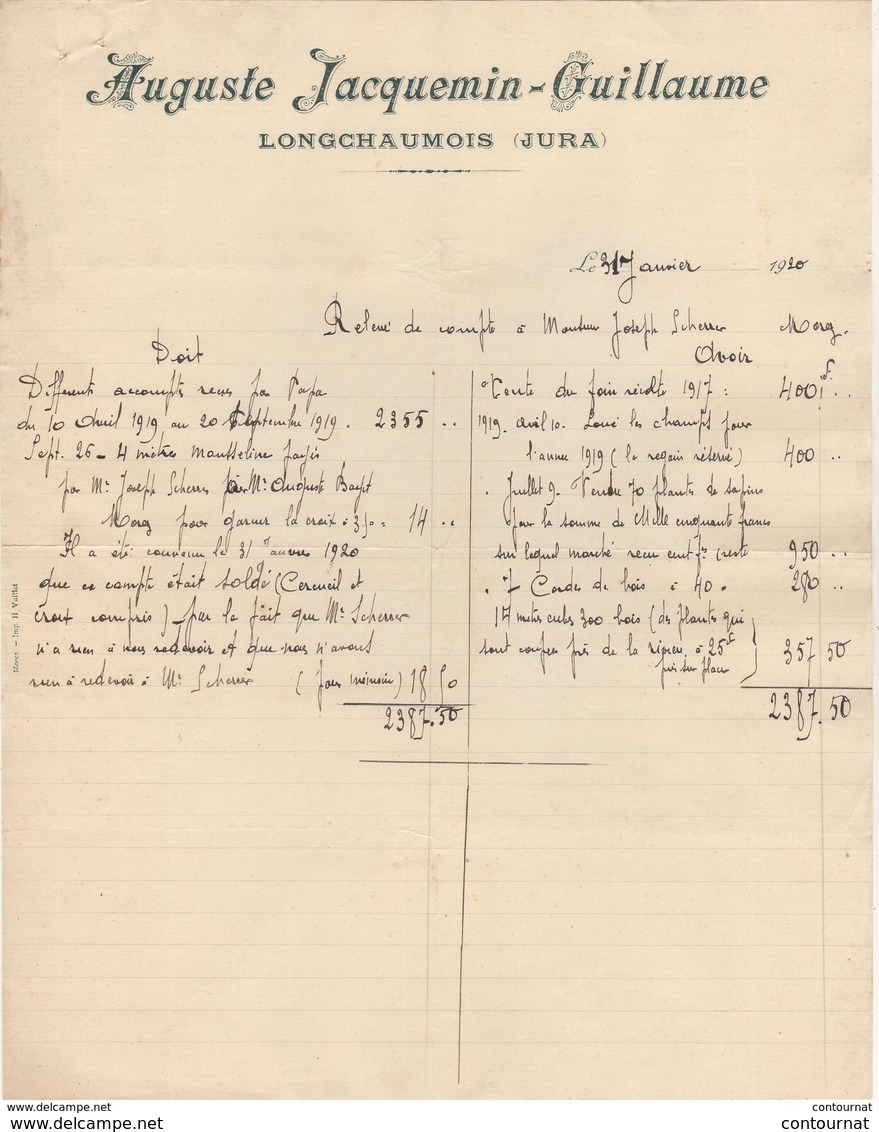 Auguste Jacquemin-Guillaume
LONGCHAUMOIS (JURA)
Le 31 Janvier 1920
Relevé de compte à Monsieur Joseph Scherrer Morez.
Doit
Différents accompts reçus par Papa
du 10 Avril 1919 au 20 Septembre 1919. 2355 ..
Sept. 26 - 4 mètres Mousseline payés
par Mr Joseph Scherrer pour Mr Auguste Bayet
Morez pour garnir la croix à 3,50 = 14 ..
Il a été convenu le 31 Janvier 1920
que ce compte était soldé (Cercueil et
croix compris) - par le fait que Mr Scherrer
n'a rien à nous redevoir et que nous n'avons
rien à redevoir à Mr Scherrer (pour mémoire) 18 50
2387.50
Avoir
Vente du foin récolte 1917 : 400 f.
1919. avril 10. Loué les champs pour
l'année 1919 (le regain réservé) 400 ..
. Juillet 9. Vendu 70 plantes de sapins
pour la somme de Mille cinquante francs
sur lequel marché reçu cent f. (reste 950 ..
. 7 Cordes de bois à 40. 280 ..
14 mètres cubes 300 bois (des plantes qui
sont coupées près de la rivière à 25f 357 50
pris sur place
2387.50
Morez - Imp. H. Vuillet
www.delcampe.net
contournat
www.delcampe.net
contournat